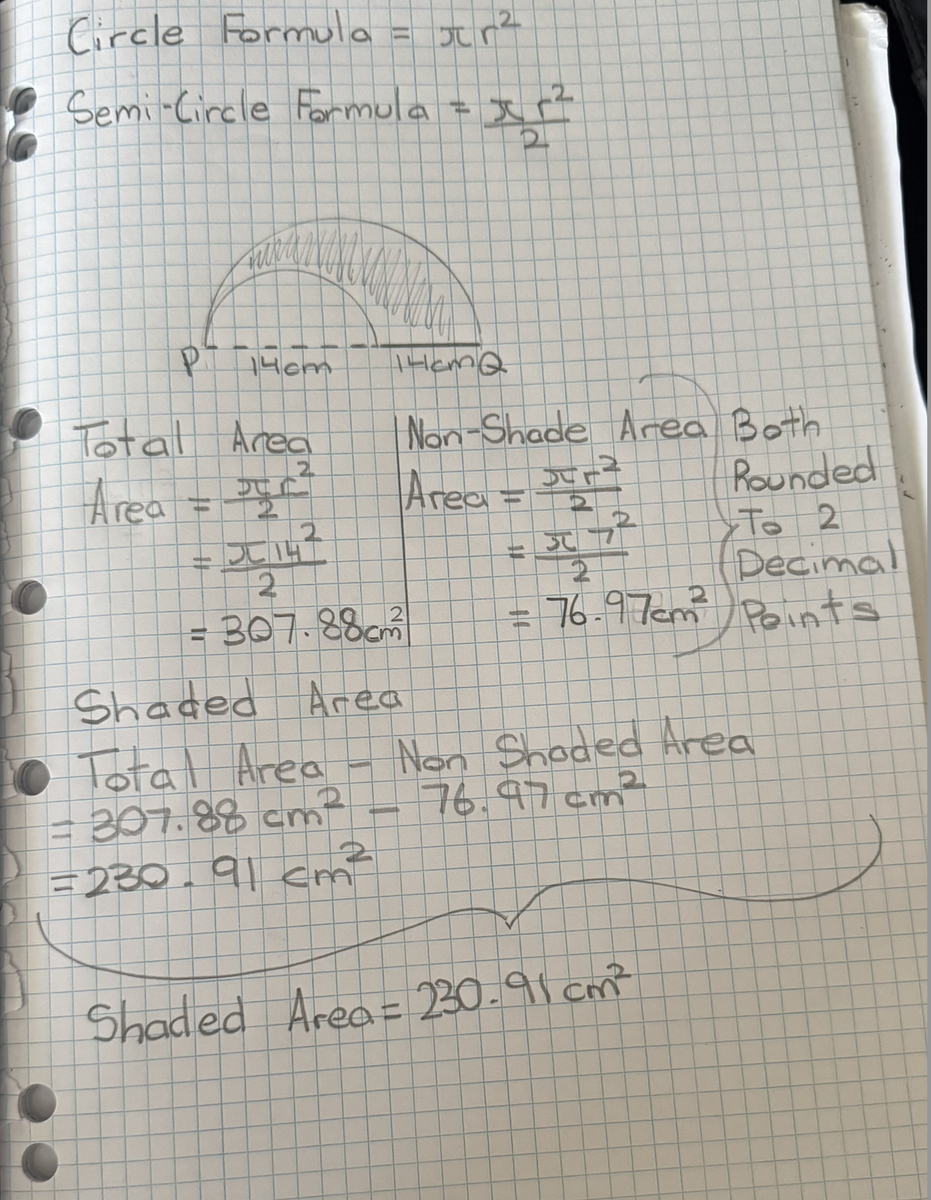 Circle Formula = πr²
Semi-Circle Formula = πr²/2
P 14cm 14cm Q
Total Area
Area = πr²/2
= π14²/2
= 307.88cm²
Non-Shade Area
Area = πr²/2
= π7²/2
= 76.97cm²
Both
Rounded
To 2
Decimal
Points
Shaded Area
Total Area - Non Shaded Area
= 307.88 cm² - 76.97 cm²
= 230.91 cm²
Shaded Area = 230.91 cm²